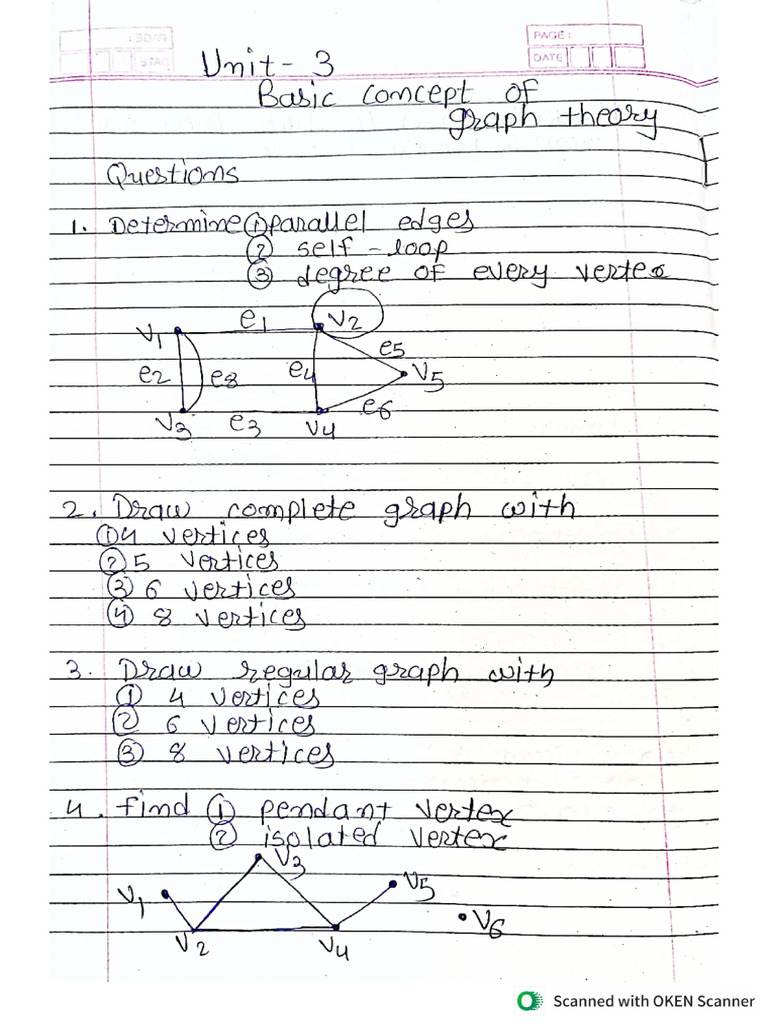 PAGE:
DATE
Unit - 3
Basic concept of
graph theory
Questions
1. Determine ① parallel edges
② self - loop
③ degree of every vertex
e1 V2
V1
e5
e2 e8 e4 V5
e6
V3 e3 V4
2. Draw complete graph with
① 4 vertices
② 5 vertices
③ 6 vertices
④ 8 vertices
3. Draw regular graph with
① 4 vertices
② 6 vertices
③ 8 vertices
4. find ① pendant vertex
② isolated vertex
V3
V1 V5
V6
V2 V4
Scanned with OKEN Scanner